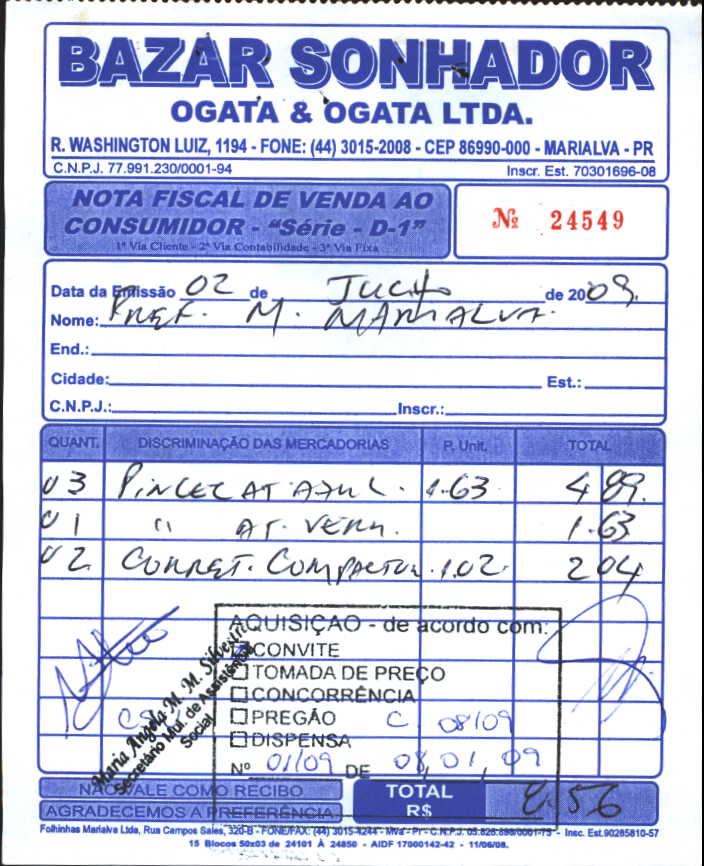 BAZAR SONHADOR
OGATA & OGATA LTDA.
R. WASHINGTON LUIZ, 1194 - FONE: (44) 3015-2008 - CEP 86990-000 - MARIALVA - PR
C.N.P.J. 77.991.230/0001-94 Inscr. Est. 70301696-08
NOTA FISCAL DE VENDA AO
CONSUMIDOR - "Série - D-1"
1ª Via Cliente - 2ª Via Contabilidade - 3ª Via Fixa
Nº 24549
Data da Emissão 02 de Julho de 2009.
Nome: PREF. M. MARIALVA.
End.:
Cidade: Est.:
C.N.P.J.: Inscr.:
QUANT. DISCRIMINAÇÃO DAS MERCADORIAS P. Unit. TOTAL
03 PINCEL AT AZUL. 1.63 4 89.
01 " AT. VERM. 1.63
02 CORRET. COMPACTOR 1.02 2 04
AQUISIÇAO - de acordo com:
CONVITE
TOMADA DE PREÇO
CONCORRÊNCIA
PREGÃO C 08/09
DISPENSA
Nº 01/09 DE 08, 01, 09
Maria Angela M. M. Silvestri
Secretário Mul. de Assistência
Social
NÃO VALE COMO RECIBO
AGRADECEMOS A PREFERÊNCIA
TOTAL
R$ 8.56
Folhinhas Marialva Ltda, Rua Campos Sales, 320-B - FONE/FAX: (44) 3015-4244 - Mva - Pr - C.N.P.J. 05.826.898/0001-73 - Insc. Est.90285810-57
15 Blocos 50x03 de 24101 À 24850 - AIDF 17000142-42 - 11/06/08.